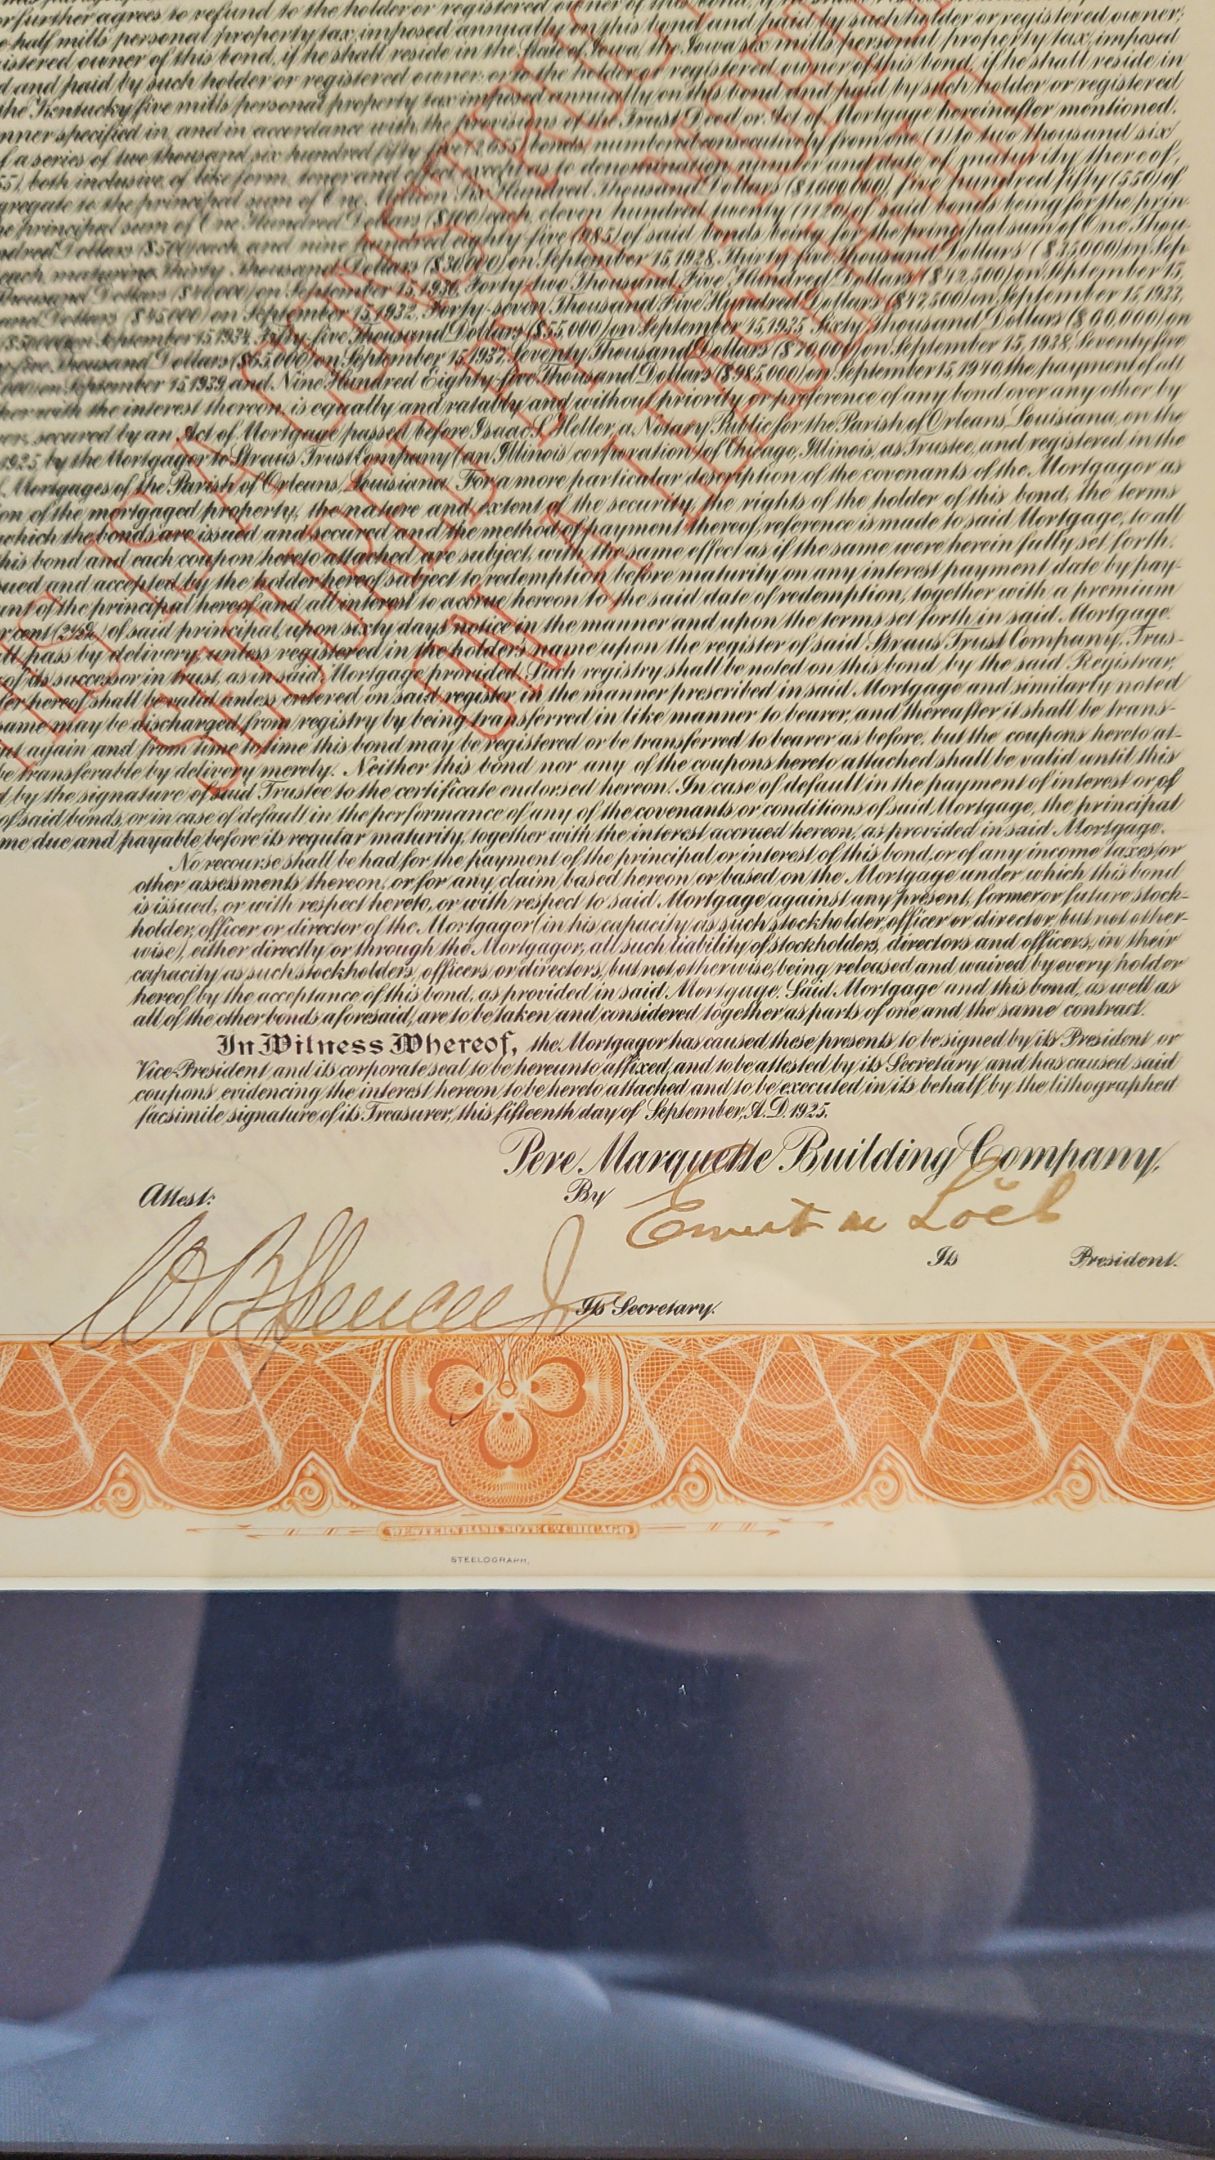 further agrees to refund to the holder or registered owner of this bond, if he shall
half mills personal property tax, imposed annually on this bond and paid by such holder or registered owner;
istered owner of this bond, if he shall reside in the State of Iowa, the Iowa six mills personal property tax, imposed
d and paid by such holder or registered owner; or to the holder or registered owner of this bond, if he shall reside in
the Kentucky five mills personal property tax imposed annually on this bond and paid by such holder or registered
nner specified in, and in accordance with the provisions of the Trust Deed or Act of Mortgage hereinafter mentioned.
f a series of two thousand six hundred fifty five (2655) bonds numbered consecutively from one (1) to two thousand six
55), both inclusive, of like form, tenor and effect, except as to denomination, number and date of maturity thereof,
gregate to the principal sum of One Million Six Hundred Thousand Dollars ($1,600,000) five hundred fifty (550) of
e principal sum of One Hundred Dollars ($100) each, eleven hundred twenty (1120) of said bonds being for the prin-
ndred Dollars $500) each and nine hundred eighty-five (985) of said bonds being for the principal sum of One Thou-
each, maturing Thirty Thousand Dollars ($30,000) on September 15, 1928, Thirty five thousand Dollars ($35,000) on Sep
Thousand Dollars ($40,000) on September 15, 1930, Forty-two Thousand Five Hundred Dollars ($42,500) on September 15,
and Dollars ($45,000) on September 15, 1932, Forty-seven Thousand Five Hundred Dollars ($47,500) on September 15, 1933,
on September 15, 1934, Fifty-five Thousand Dollars ($55,000) on September 15, 1935, Sixty Thousand Dollars ($60,000) on
five Thousand Dollars ($65,000) on September 15, 1937, Seventy Thousand Dollars ($70,000) on September 15, 1938, Seventy five
on September 15, 1939, and Nine Hundred Eighty-five Thousand Dollars ($985,000) on September 15, 1940, the payment of all
her with the interest thereon, is equally and ratably and without priority or preference of any bond over any other by
secured by an Act of Mortgage passed before Isaac L. Heller, a Notary Public for the Parish of Orleans, Louisiana, on the
1925 by the Mortgagor to Straus Trust Company (an Illinois corporation) of Chicago, Illinois, as Trustee, and registered in the
Mortgages of the Parish of Orleans, Louisiana. For a more particular description of the covenants of the Mortgagor as
on of the mortgaged property, the nature and extent of the security, the rights of the holder of this bond, the terms
which the bonds are issued and secured and the method of payment thereof, reference is made to said Mortgage, to all
his bond and each coupon hereto attached are subject, with the same effect as if the same were herein fully set forth.
ued and accepted by the holder hereof subject to redemption before maturity on any interest payment date by pay-
unt of the principal hereof and all interest to accrue hereon to the said date of redemption, together with a premium
r cent (2½%) of said principal, upon sixty days' notice in the manner and upon the terms set forth in said Mortgage.
ll pass by delivery, unless registered in the holder's name upon the register of said Straus Trust Company, Trus-
of its successor in trust, as in said Mortgage provided. Such registry shall be noted on this bond by the said Registrar,
fer hereof shall be valid unless entered on said register in the manner prescribed in said Mortgage and similarly noted
ame may be discharged from registry by being transferred in like manner to bearer, and thereafter it shall be trans-
ut again and from time to time this bond may be registered or be transferred to bearer as before, but the coupons hereto at-
be transferable by delivery merely. Neither this bond nor any of the coupons hereto attached shall be valid until this
d by the signature of said Trustee to the certificate endorsed hereon. In case of default in the payment of interest or of
of said bonds, or in case of default in the performance of any of the covenants or conditions of said Mortgage, the principal
me due and payable before its regular maturity, together with the interest accrued hereon, as provided in said Mortgage.
No recourse shall be had for the payment of the principal or interest of this bond, or of any income taxes or
other assessments thereon, or for any claim based hereon or based on the Mortgage under which this bond
is issued, or with respect hereto, or with respect to said Mortgage, against any present, former or future stock-
holder, officer or director of the Mortgagor (in his capacity as such stockholder, officer or director, but not other-
wise), either directly or through the Mortgagor, all such liability of stockholders, directors and officers, in their
capacity as such stockholders, officers or directors, but not otherwise, being released and waived by every holder
hereof by the acceptance of this bond, as provided in said Mortgage. Said Mortgage and this bond, as well as
all of the other bonds aforesaid, are to be taken and considered together as parts of one and the same contract.
In Witness Whereof, the Mortgagor has caused these presents to be signed by its President or
Vice-President and its corporate seal to be hereunto affixed, and to be attested by its Secretary and has caused said
coupons evidencing the interest hereon to be hereto attached and to be executed in its behalf by the lithographed
facsimile signature of its Treasurer, this fifteenth day of September, A.D. 1925.
Pere Marquette Building Company,
Attest:
By Ernest M Loëb
Its President.
W B Spencer Jr
Its Secretary.
WESTERN BANK NOTE CO. CHICAGO
STEELOGRAPH.